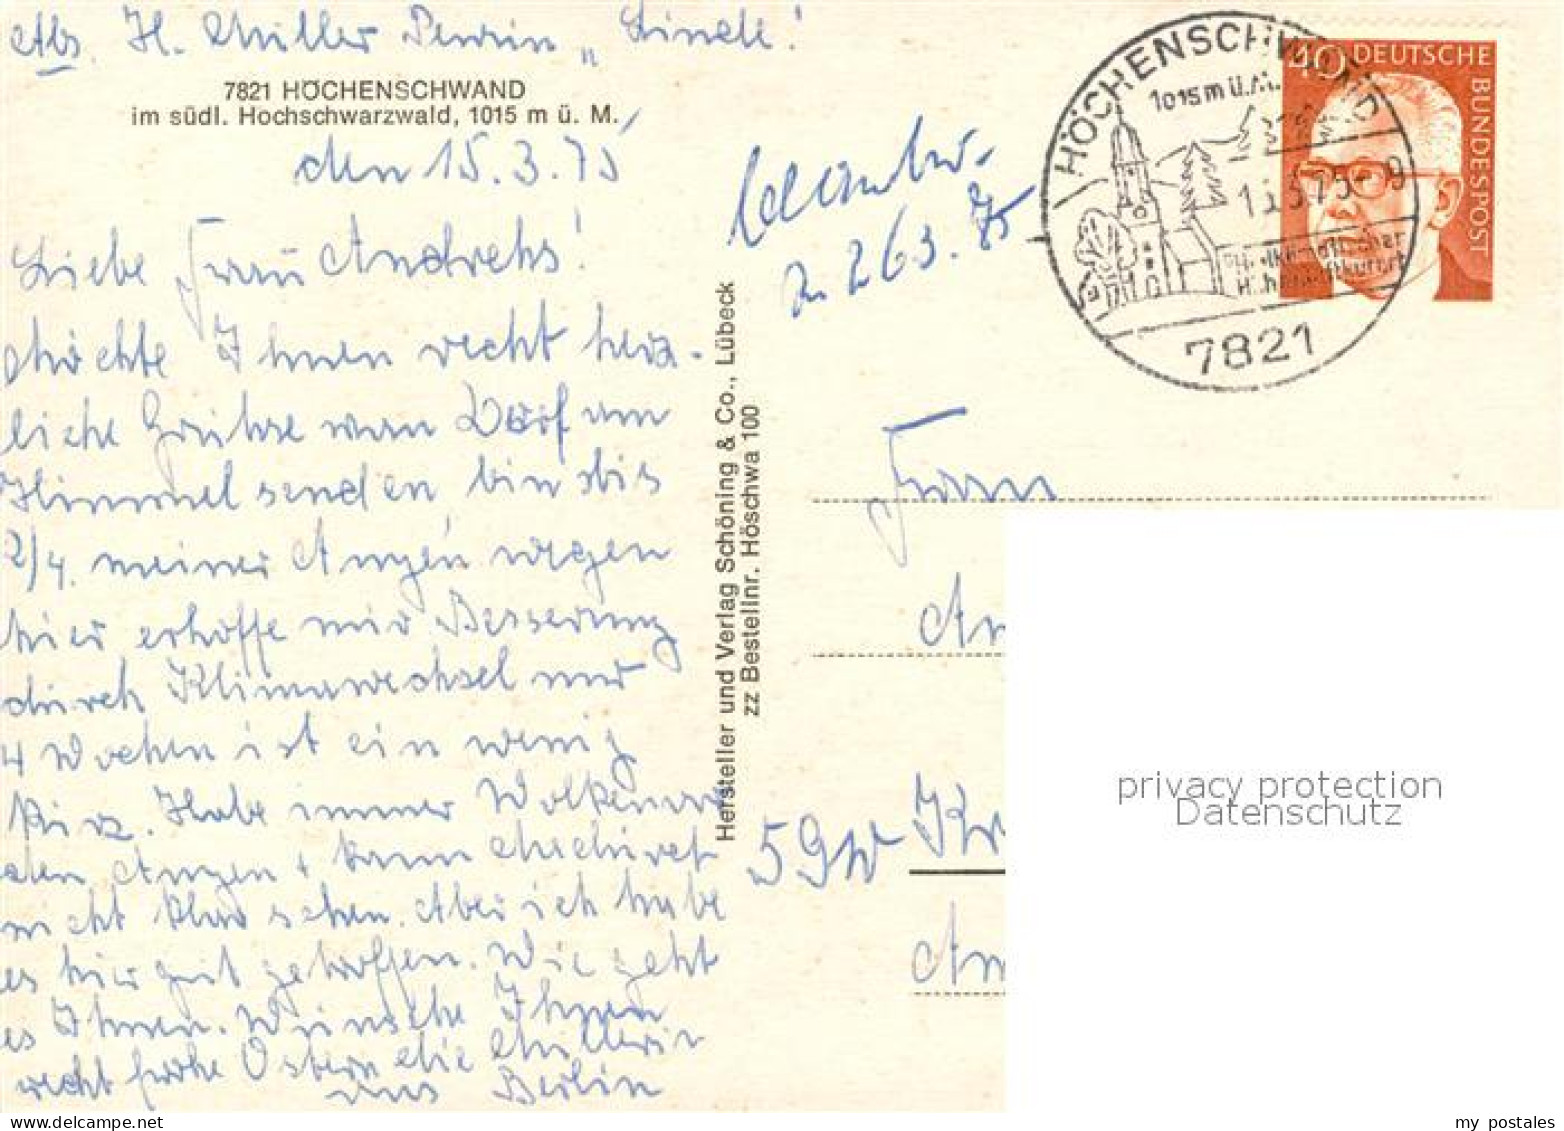 Abs. H. Müller Pension „Linde!
7821 HÖCHENSCHWAND
im südl. Hochschwarzwald, 1015 m ü. M.
den 15.3.75
Liebe Frau Andrehs!
Möchte Ihnen recht herz-
liche Grühse vom Dorf am
Himmel senden bin bis
2/4. meiner Augen wegen
hier erhoffe mir Besserung
durch Klimawechsel nur
4 Wochen ist ein wenig
kurz. Habe immer Wolken vor
den Augen + kann
nicht klar sehen. Aber ich habe
es hier gut getroffen. Wie geht
es Ihnen. Wünsche Ihnen
recht frohe Ostern die Müllerin
aus Berlin
Hersteller und Verlag Schöning & Co., Lübeck
zz Bestellnr. Höschwa 100
26.3.75
HÖCHENSCHWAND
1015 m ü. M.
75-9
7821
40 DEUTSCHE
BUNDESPOST
Frau
An
59W Kr
Am
privacy protection
Datenschutz
my postales